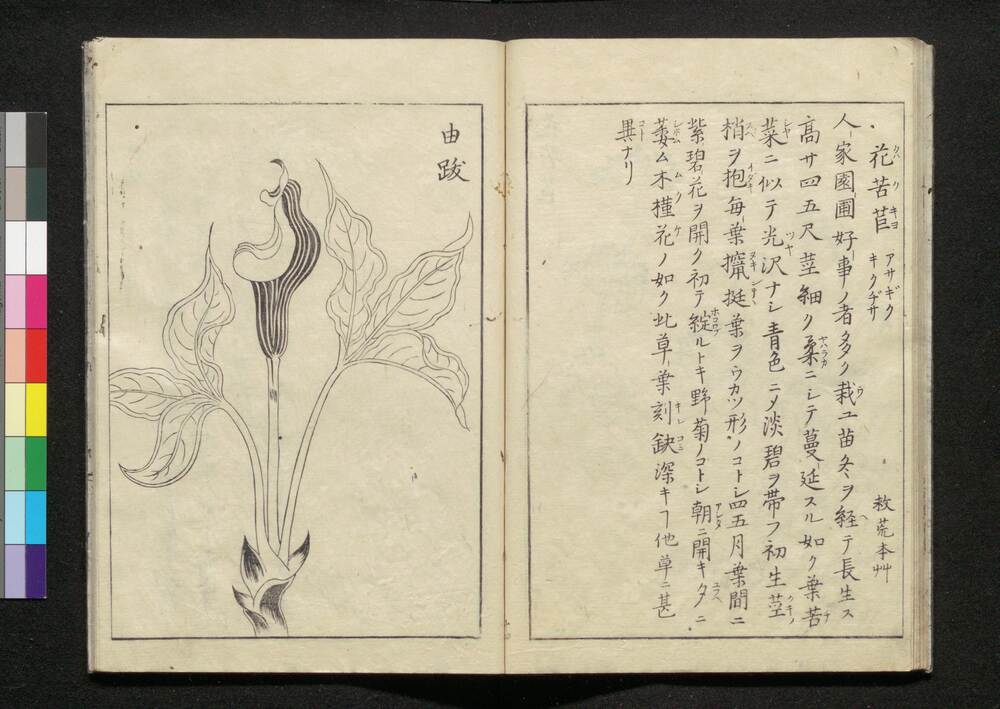 花苦苣 アサギク キクヂサ 救荒本艸
人家園圃好事ノ者多ク栽ユ苗冬ヲ経テ長生ス
高サ四五尺茎細ク柔ニシテ蔓延スル如ク葉苦
菜ニ似テ光沢ナシ青色ニメ淡碧ヲ帯フ初生茎
梢ヲ抱毎葉挺葉ヲウカツ形ノコトシ四五月葉間ニ
紫碧花ヲ開ク初テ綻ルトキ野菊ノコトシ朝ニ開キタニ
萎ム木槿花ノ如ク此草葉刻缺深キヿ他草ニ甚
異ナリ
由跋